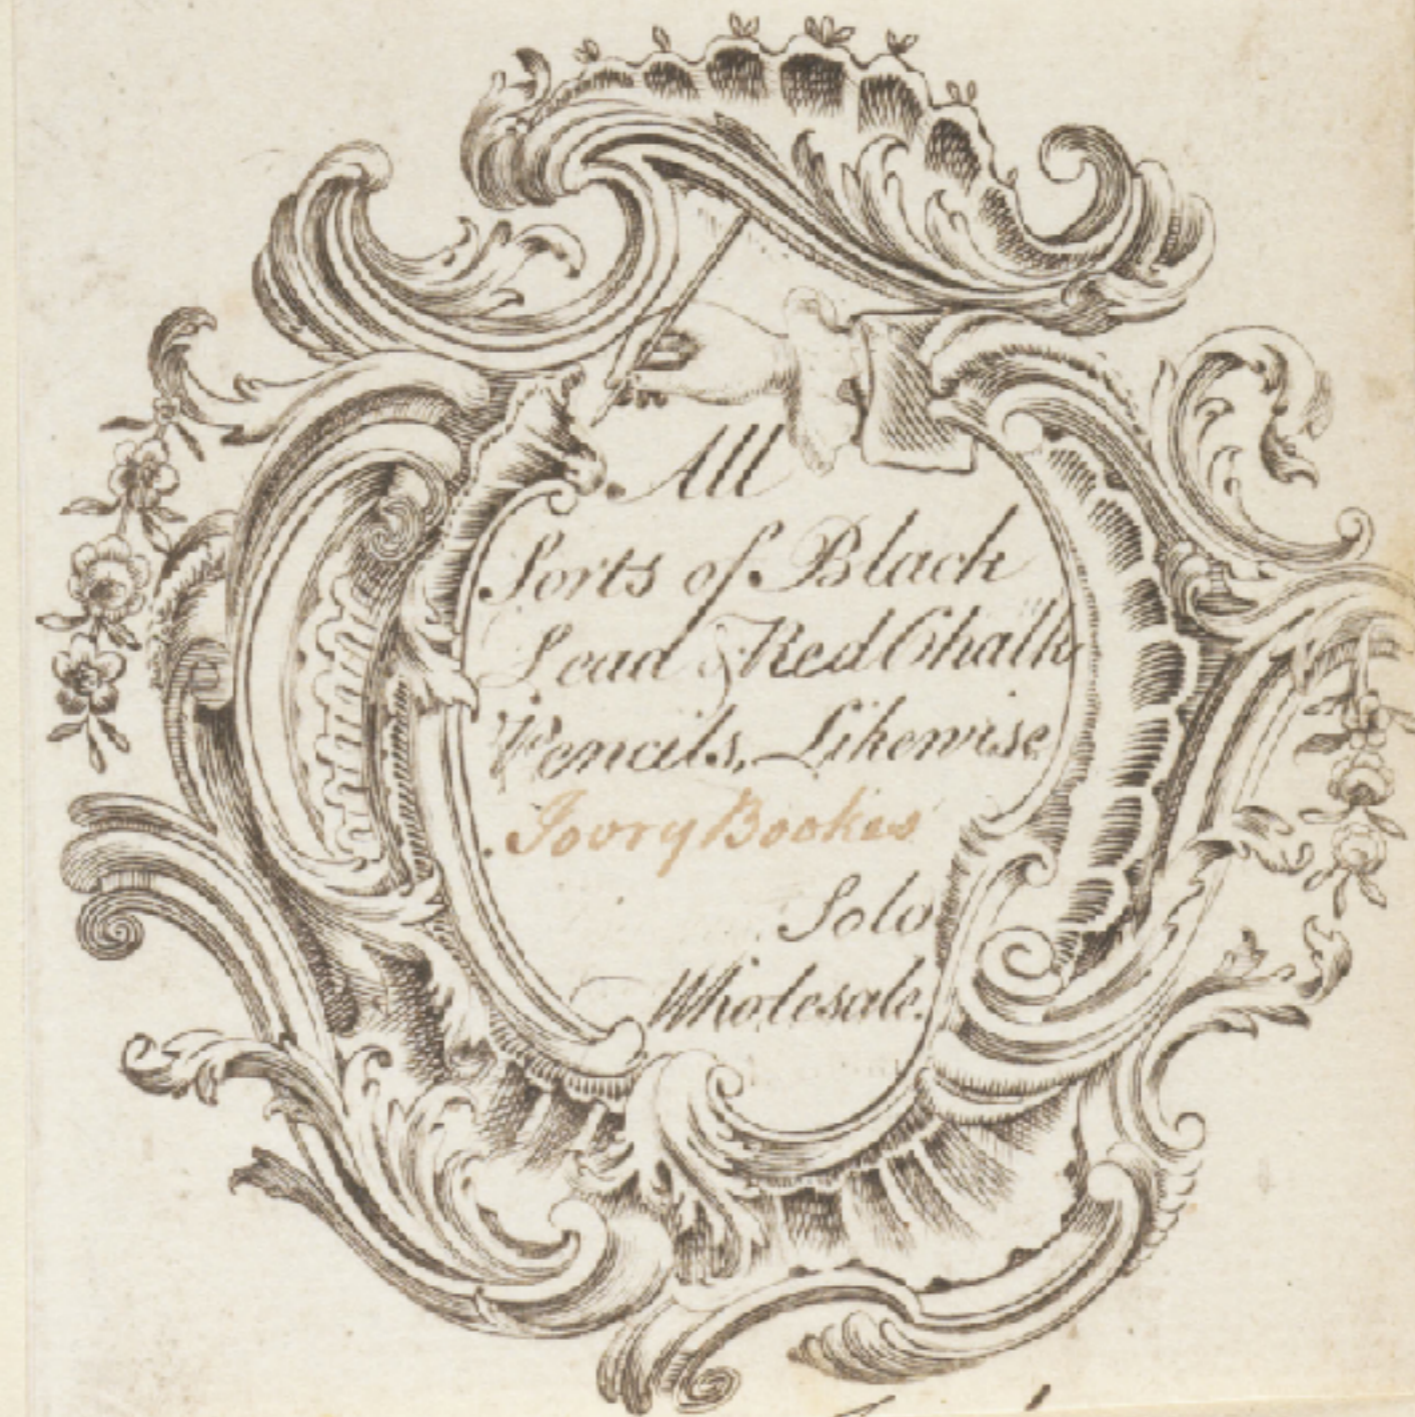 All
Sorts of Black
Lead & Red Chalk
Pencils, Likewise
Ivory Bookes
Sold
Wholesale.